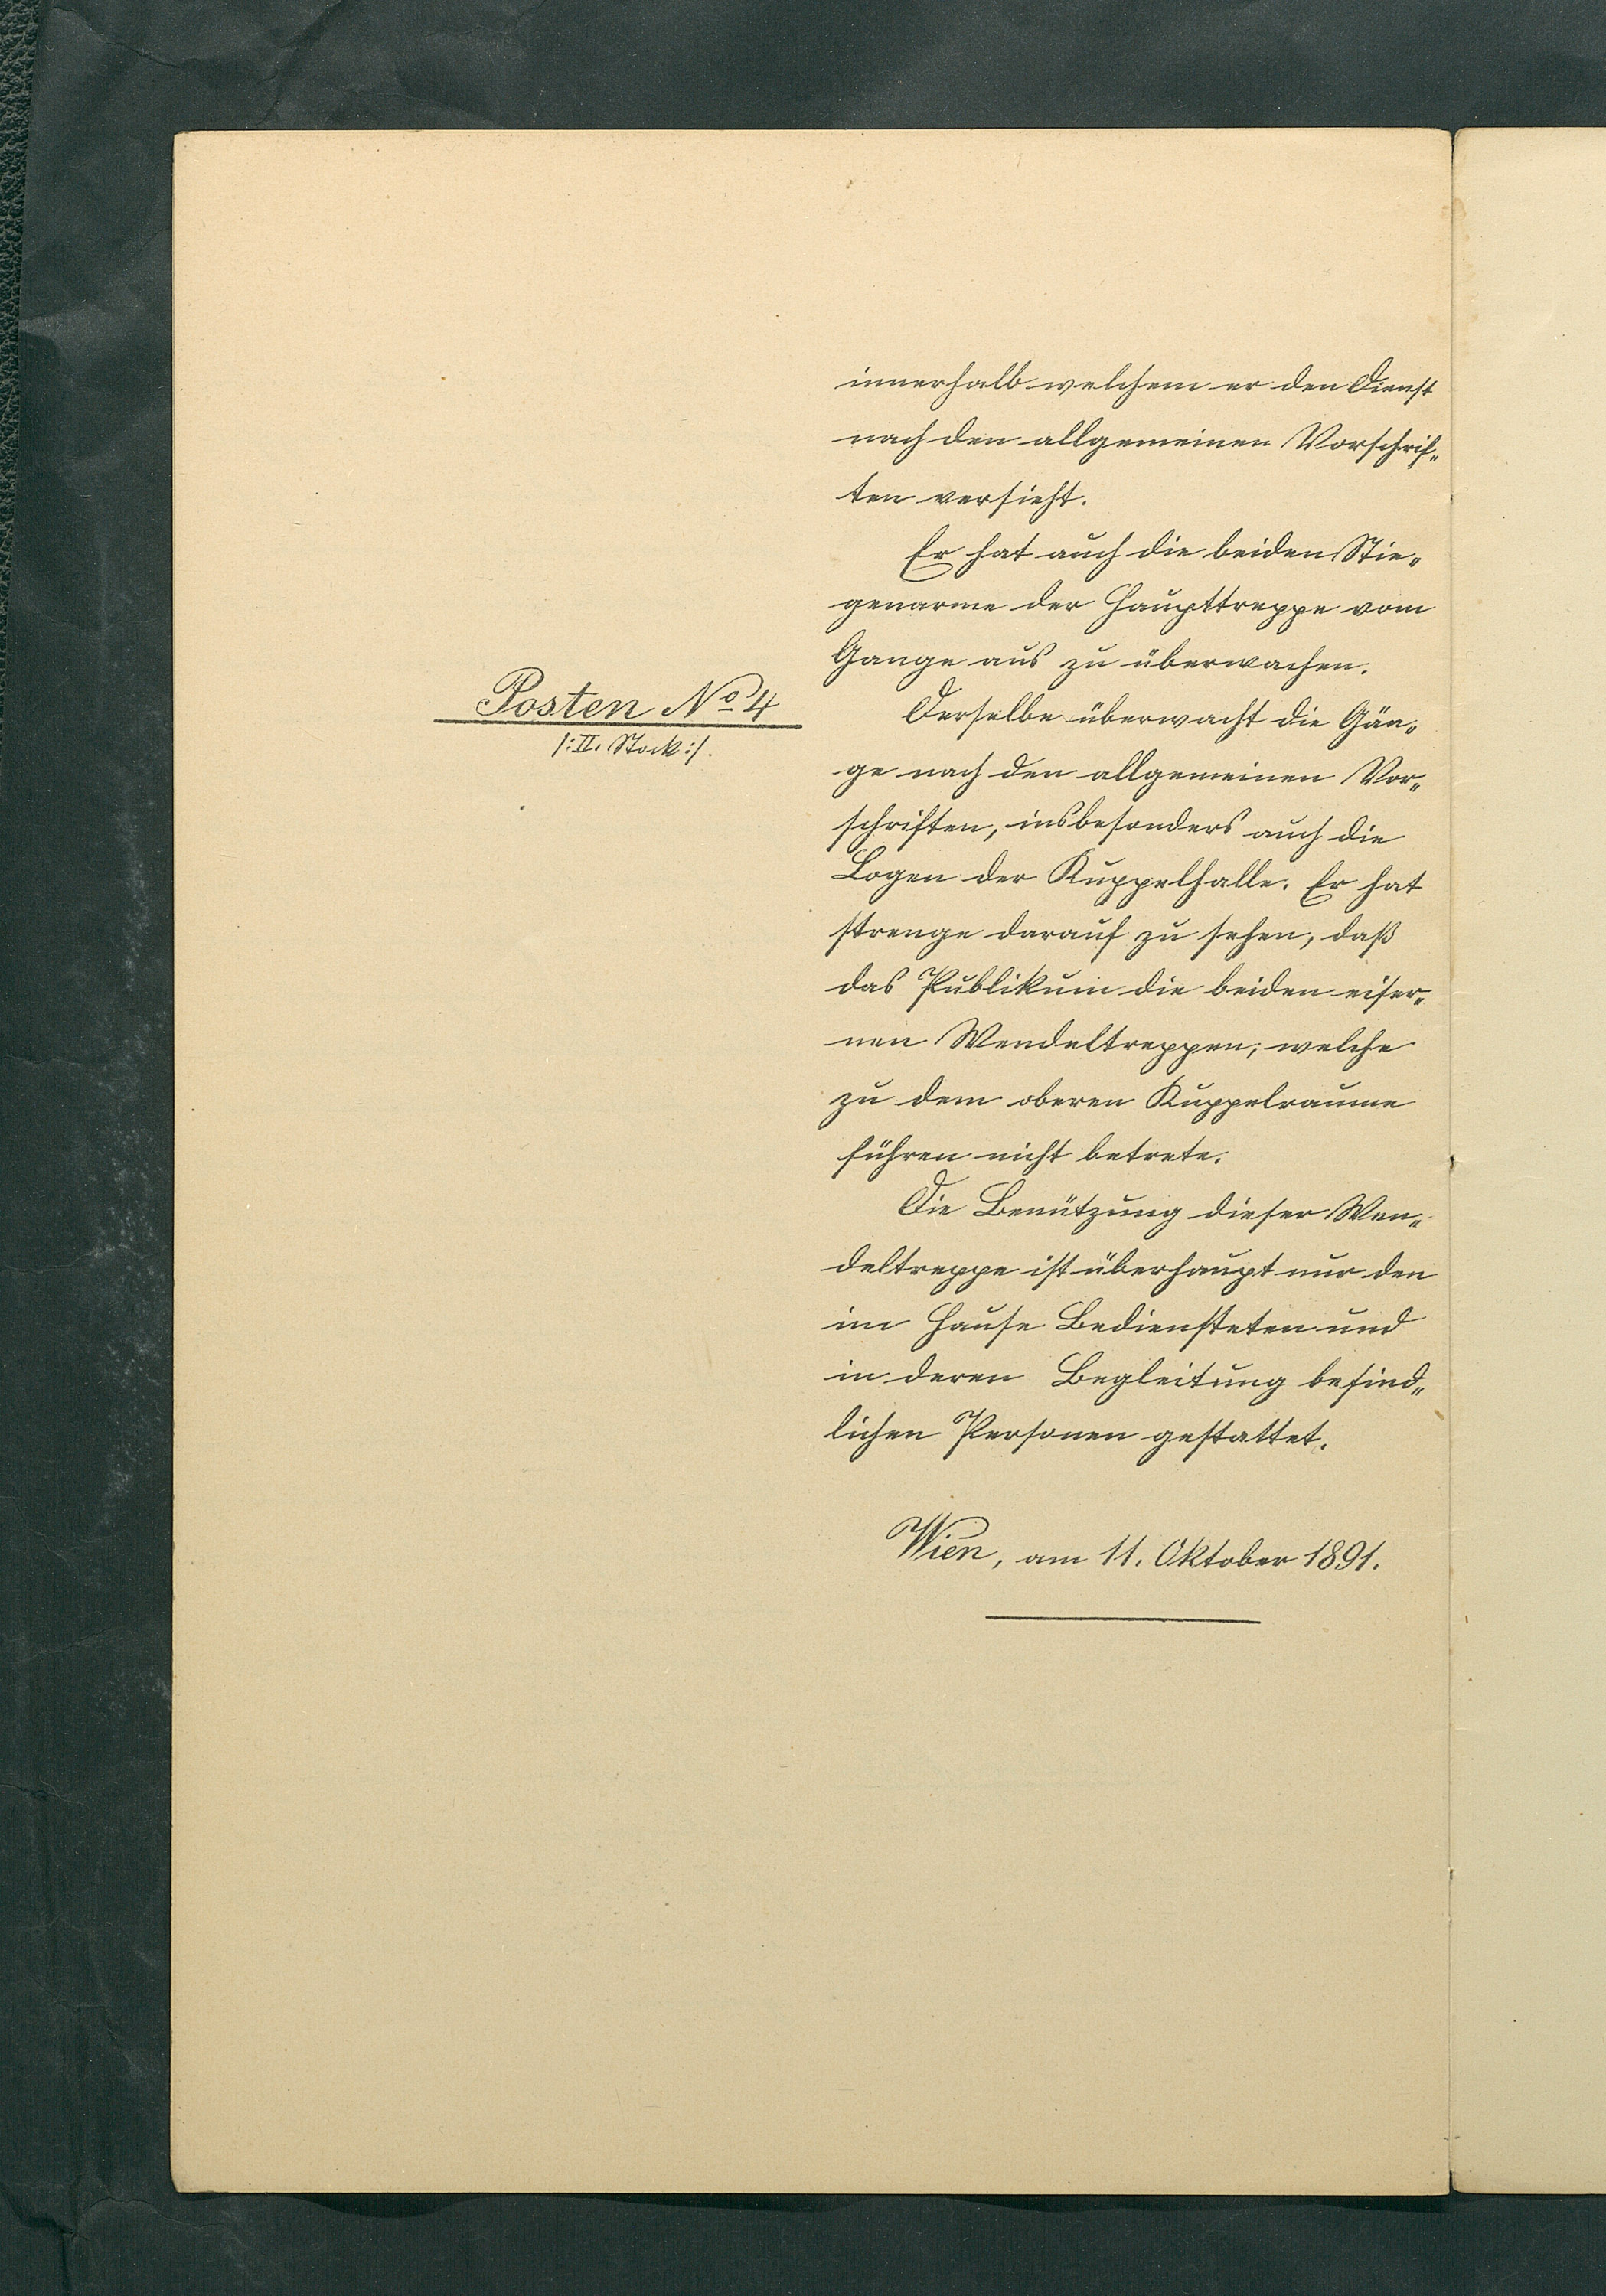 innerhalb welchem er den Dienst
nach den allgemeinen Vorschrif„
ten versieht.
Er hat auch die beiden Stie„
genarme der Haupttreppe vom
Gange aus zu überwachen.
Posten No 4
/: II. Stock :/.
Derselbe überwacht die Gän„
ge nach den allgemeinen Vor„
schriften, insbesonders auch die
Logen der Kuppelhalle. Er hat
strenge darauf zu sehen, daß
das Publikum die beiden eiser„
nen Wendeltreppen, welche
zu dem oberen Kuppelraume
führen nicht betrete.
Die Benützung dieser Wen„
deltreppe ist überhaupt nur den
im Hause Bediensteten und
in deren Begleitung befind„
lichen Personen gestattet.
Wien, am 11. Oktober 1891.